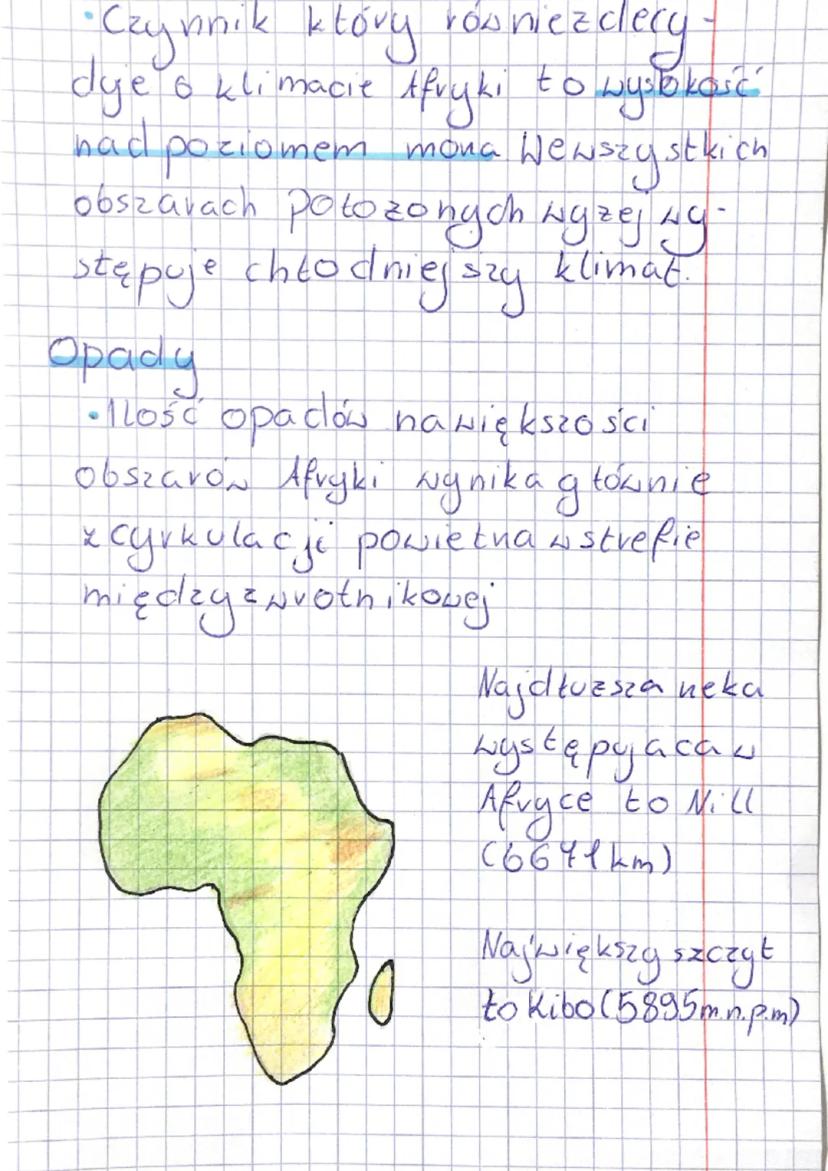 •Czynnik który również decy-
dyje o klimacie Afryki to wysokość
nad poziomem mora Wewszystkich
obszarach położonych wyżej wy-
stępuje chłodniejszy klimat.
Opady
•Ilość opadów na większości
obszarów Afryki wynika głównie
z cyrkulacji powietrza w strefie
międzyzwrotnikowej
Najdłuższa rzeka
występująca w
Afryce to Nill
(6671km)
Największy szczyt
to Kibo (5895m.n.p.m)